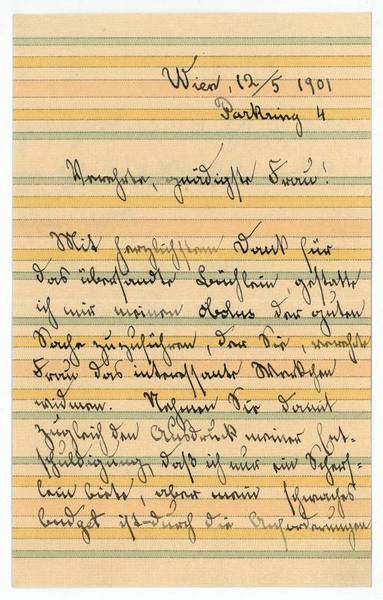 Wien, 12/5 1901
Parkring 4
Verehrte, gnädigste Frau!
Mit herzlichstem Dank für
das übersandte Büchlein, gestatte
ich mir meinen obolus der guten
Sache zuzuführen, der Sie, verehrte
Frau das interessante Werkchen
widmen. Nehmen Sie damit
zugleich den Ausdruck meiner Ent-
schuldigung, daß ich nur ein Scherf-
lein biete, aber mein schwaches
budget ist durch die Anforderungen